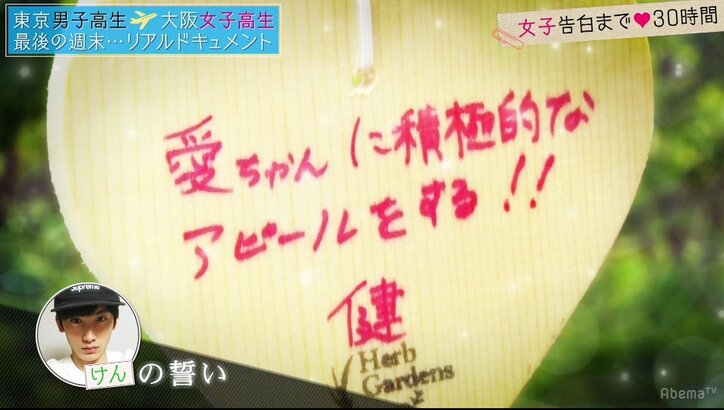 東京男子高生 大阪女子高生
最後の週末…リアルドキュメント
女子告白まで♥30時間
愛ちゃんに積極的な
アピールをする!!
健
Herb
Gardens
Supreme
けんの誓い
AbemaTV.